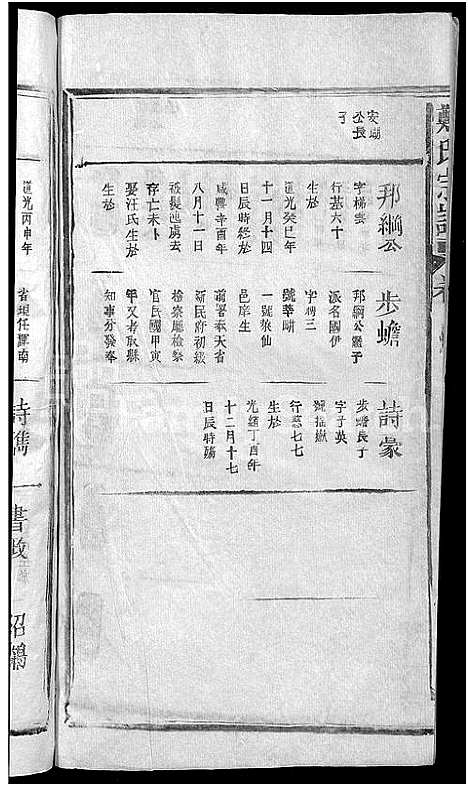 鄭氏宗譜
安瑚
公長
子
邦綱公
字梯雲
行基六十
道光癸巳年
十一月十四
日辰時生於
咸豐辛酉年
八月十一日
被髮逆虜去
存亡未卜
娶汪氏生於
道光丙申年
步蟾
邦綱公繼子
派名國伊
字楞三
號華嘯
一號狼仙
邑庠生
前署奉天省
新民府初級
檢察廳檢察
官民國甲寅
年又考取縣
知事分發奉
省現任輝南
詩豪
步蟾長子
字子英
行慈七七
生於
光緒丁酉年
十二月十七
日辰時殤
詩雋
書政
紹鵷